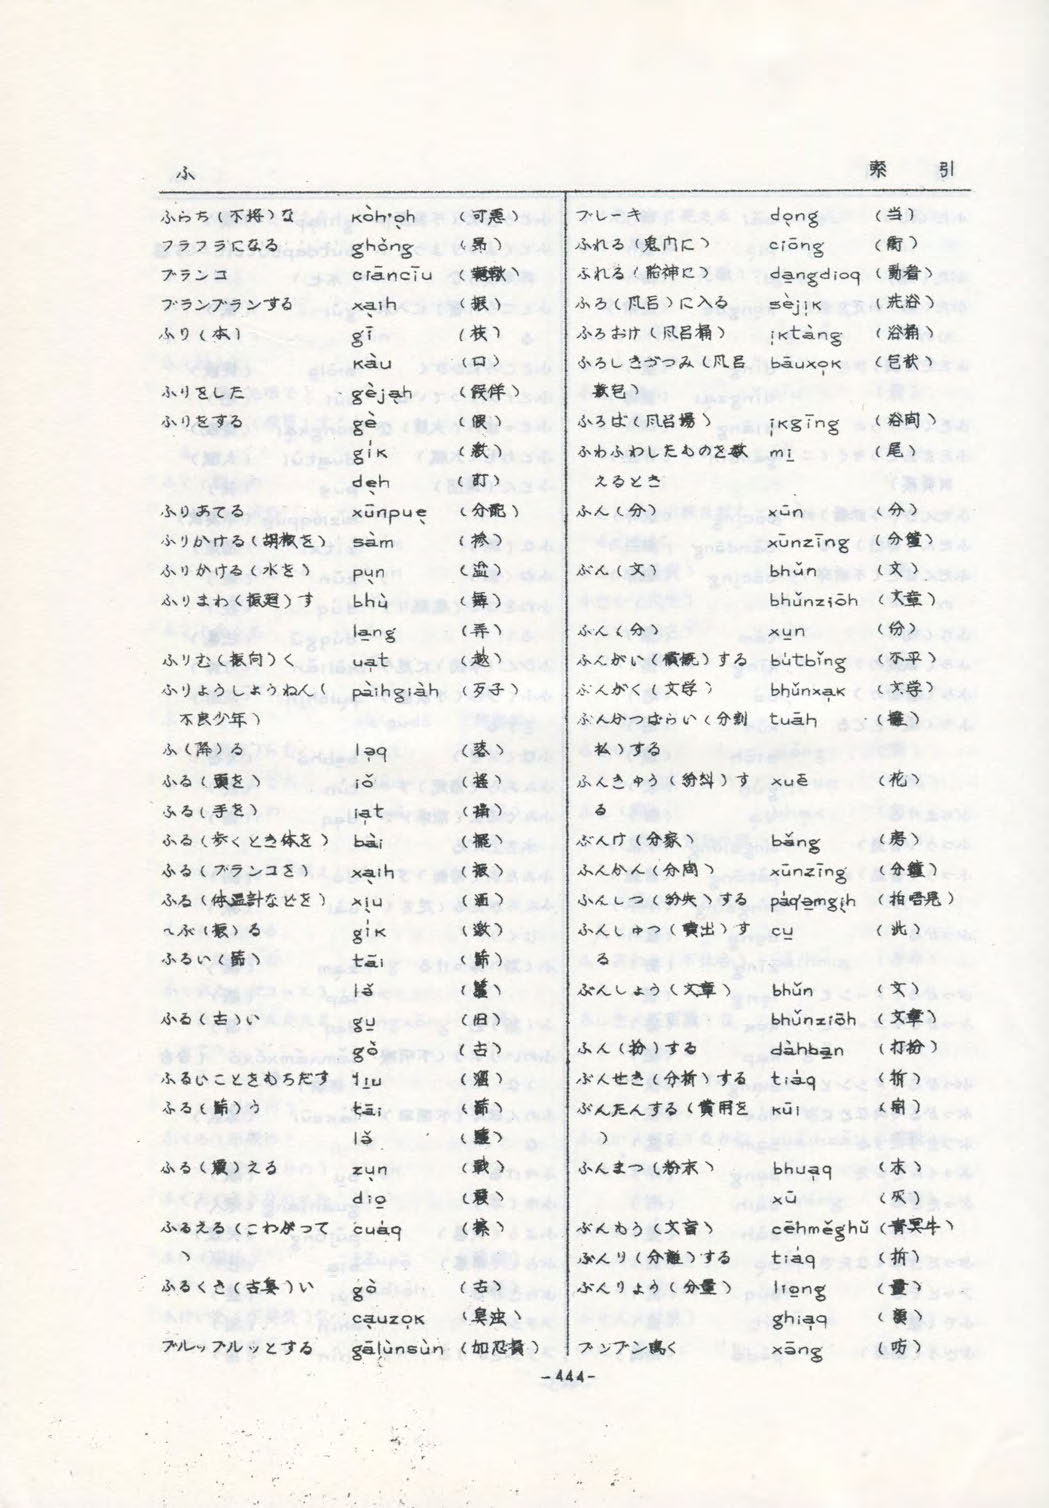 ふ 索 引
ふらち(不埒)な kòh·o̱h (可悪)
フラフラになる ghǒng (昴)
ブランコ ciāncīu
ブランブランする xa̱ih (振)
ふり(本) gī (枝)
kàu (口)
ふりをした gèja̱h (假佯)
ふりをする gè (假)
gík (教)
de̱h (訂)
ふりあてる xūnpue̱ (分配)
ふりかける(胡椒を) sàm (掺)
ふりかける(水を) pu̱n (盆)
ふりまわ(振廻)す bhù (舞)
la̱ng (弄)
ふりむ(振向)く ua̱t (越)
ふりょうしょうねん( pàihgiàh (歹子)
不良少年)
ふ(降)る lo̱q (落)
ふる(頭を) iǒ (搖)
ふる(手を) ia̱t
ふる(歩くとき体を) bài (擺)
ふる(ブランコを) xa̱ih (振)
ふる(体温計などを) xi̱u
へぶ(振)る gík (激)
ふるい(篩) tāi (篩)
lǎ
ふる(古)い gu̱ (旧)
gò (古)
ふるいことをもちだす
ふる(篩)う tāi (篩)
lǎ
ふる(震)える zu̱n (戦)
dio̱
ふるえる(こわがって cuáq
)
ふるくさ(古臭)い gò (古)
ca̱uzo̱k (臭浊)
ブルップルッとする gālùnsùn (加忍損)
ブレーキ do̱ng (当)
ふれる(鬼門に) ciōng (衝)
ふれる(胎神に) da̱ngdioq (動着)
ふろ(風呂)に入る sèji̱k (洗浴)
ふろおけ(風呂桶) i̱ktàng (浴桶)
ふろしきづつみ(風呂 bāuxo̱k (包袱)
敷包)
ふろば(風呂場) i̱kgīng (浴間)
ふわふわしたものを数 mi̱ (尾)
えるとき
ふん(分) xūn (分)
xūnzīng (分鐘)
ぶん(文) bhǔn (文)
bhǔnziōh (文章)
ぶん(分) xu̱n (份)
ふんがい(憤慨)する bútbǐng (不平)
ぶんがく(文学) bhǔnxa̱k (文学)
ぶんかつばらい(分割 tuāh (攤)
払)する
ふんきゅう(紛糾)す xuē (花)
る
ぶんけ(分家) bǎng (房)
ふんかん(分間) xūnzīng (分鐘)
ふんしつ(紛失)する
ふんしゅつ(噴出)す cu̱ (泚)
る
ぶんしょう(文章) bhǔn (文)
bhǔnziōh (文章)
ふん(扮)する dàhba̱n (打扮)
ぶんせき(分析)する tiáq (折)
ぶんたんする(費用を kūi
)
ふんまつ(粉末) bhua̱q (末)
xū (灰)
ぶんもう(文盲) cēhměghǔ (青冥牛)
ぶんり(分離)する tiáq (折)
ぶんりょう(分量) lio̱ng (量)
ghia̱q
ブンブン鳴く xōng
-444-